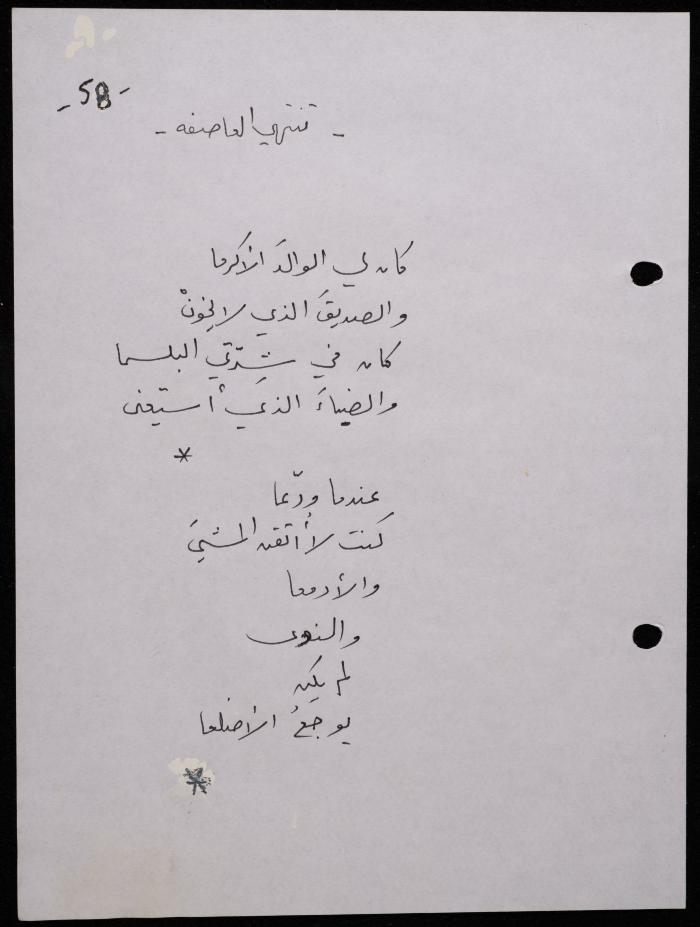 - 58 -
- تنتهي العاصفه -
كان لي الوالدَ الأكرما
والصديقَ الذي لا يخونْ
كان في شِدّتي البلسما
والضياءَ الذي أستعين
*
عندما ودّعا
كنت لا أُتقن المشيَ
والأدمعا
والنوى
لم يكن
يوجعُ الأضلعا
*